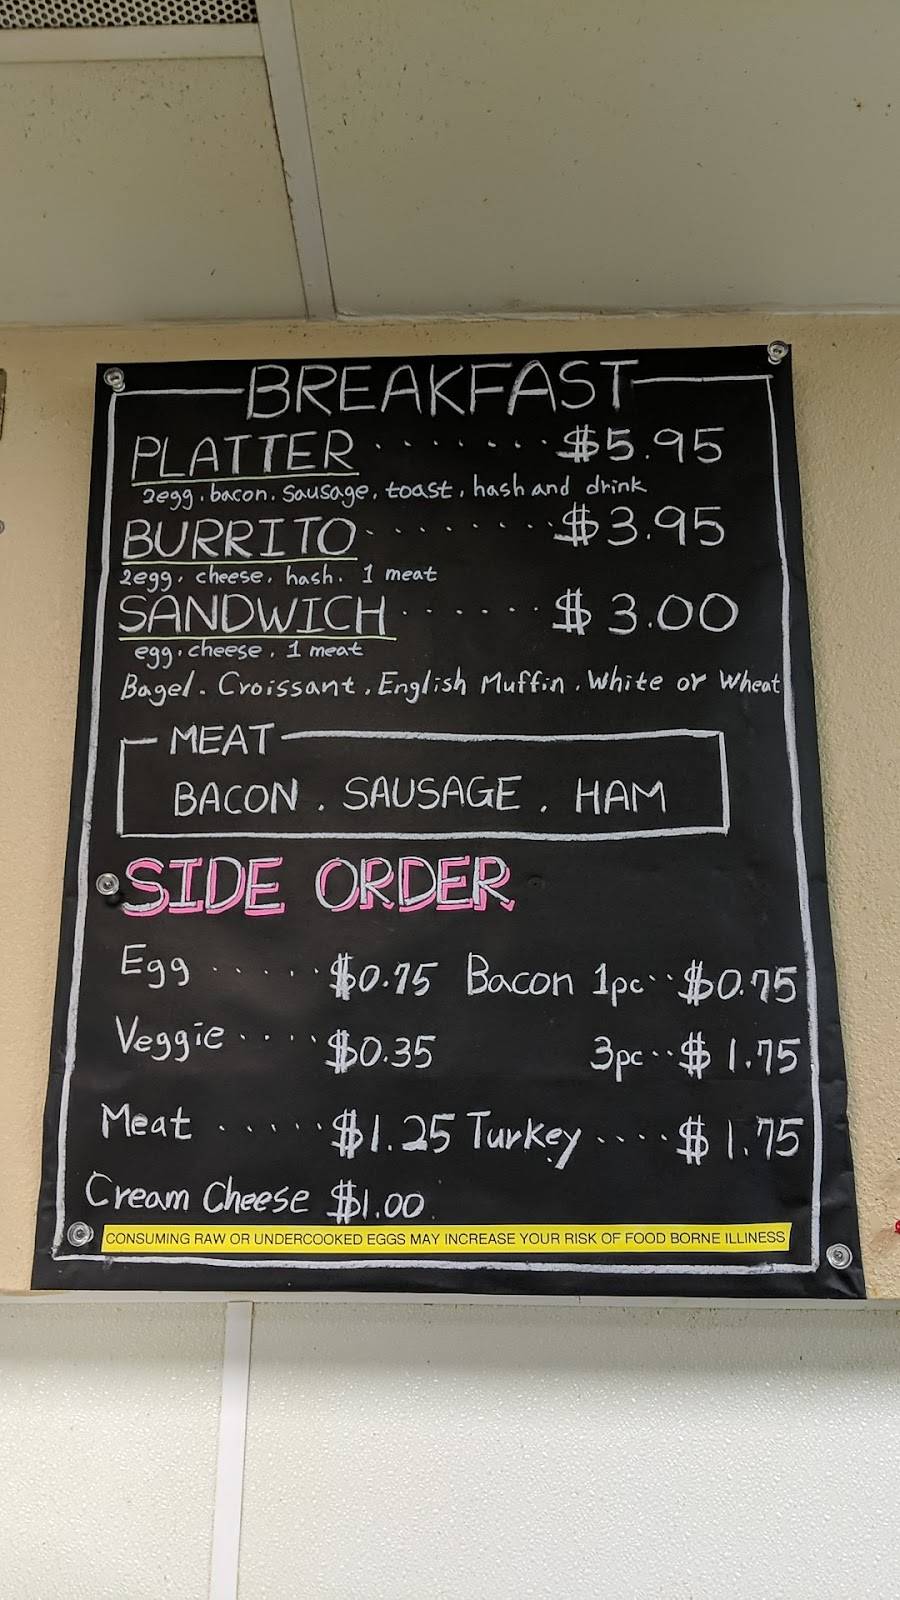 BREAKFAST
PLATTER ........ $5.95
2egg. bacon. sausage. toast. hash and drink
BURRITO ......... $3.95
2egg. cheese. hash. 1 meat
SANDWICH ....... $3.00
egg. cheese. 1 meat
Bagel. Croissant. English Muffin. White or Wheat
MEAT
BACON . SAUSAGE . HAM
SIDE ORDER
Egg ...... $0.75 Bacon 1pc.. $0.75
Veggie .... $0.35 3pc.. $1.75
Meat ...... $1.25 Turkey .... $1.75
Cream Cheese $1.00
CONSUMING RAW OR UNDERCOOKED EGGS MAY INCREASE YOUR RISK OF FOOD BORNE ILLINESS